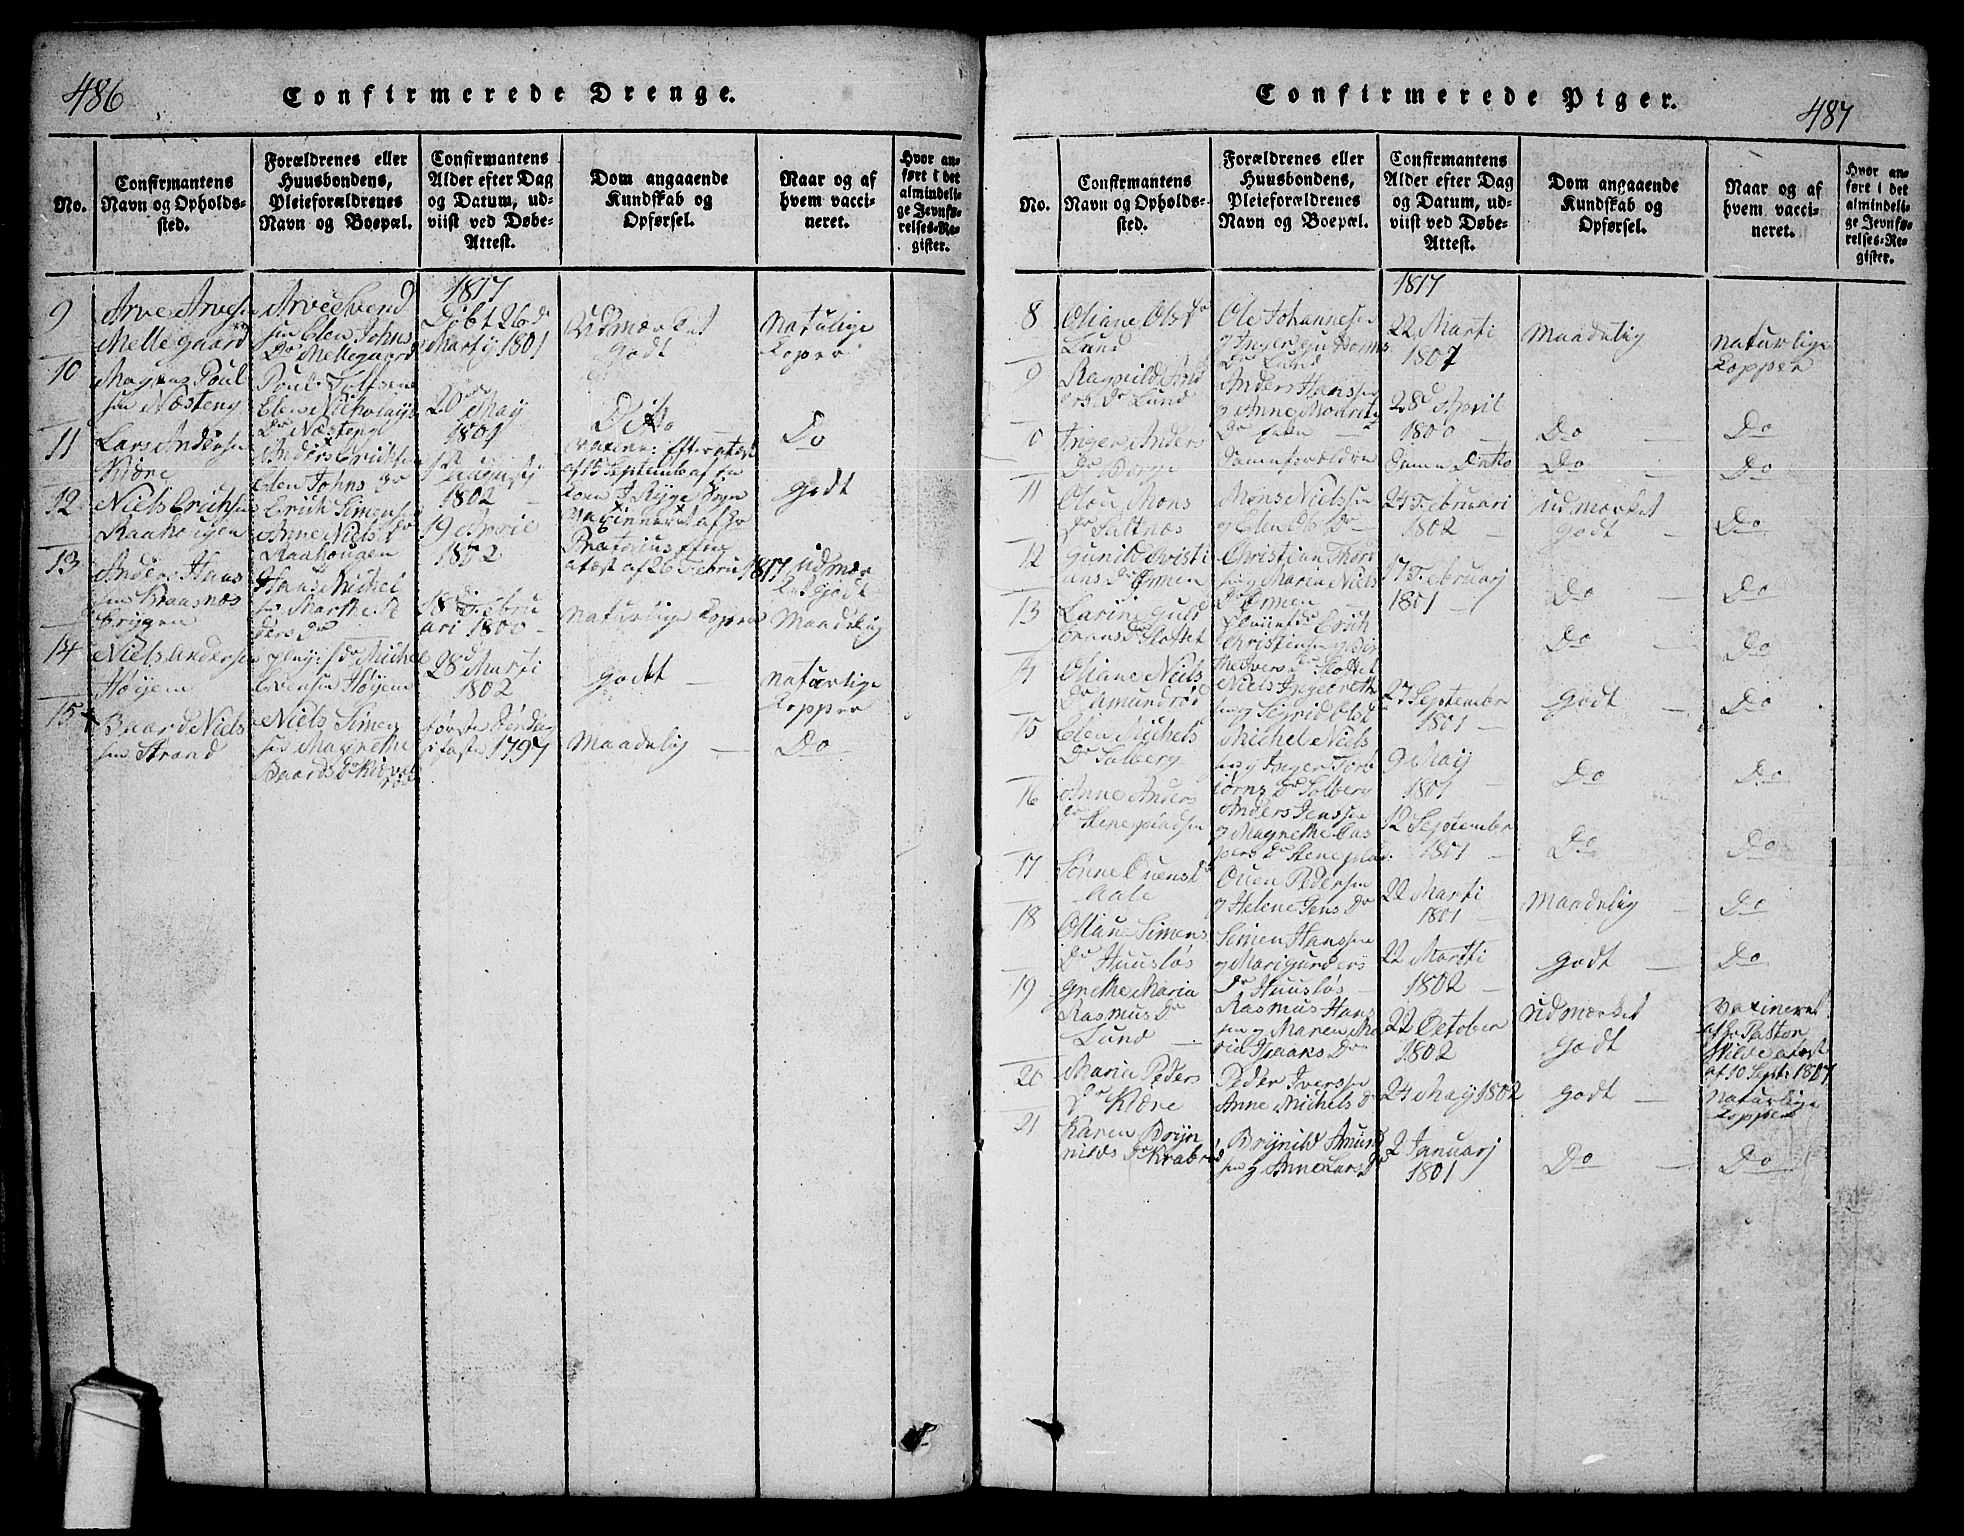 486
Confirmerede Drenge.
No.
Confirmantens
Navn og Opholds-
sted.
Forældrenes eller
Huusbondens,
Pleieforældrenes
Navn og Boepæl.
Confirmantens
Alder efter Dag
og Datum, ud-
viist ved Døbe-
Attest.
Dom angaaende
Kundskab og
Opførsel.
Naar og af
hvem vacci-
neret.
Hvor an-
ført i det
almindeli-
ge Jevnfø-
relses-Re-
gister.
1817
9
Arve Arves
Mellegaard
Arve Svend
sen Elen Johns
Dr Mellegaard
Døbt 26de
Martj 1801
Udmærket
godt
Naturlige
Kopper
10
Magnus Poul
sen Næsteng
Poul
Elen Nicholays
Dr Næsteng
20de
May
1801
Dito
Do
11
Lars Andersen
Kiære
Anders Erichsen
Elen Johns Dr
Augustj
1802
af 15 September af
Rygge Sogn
Godt
12
Niels Erichsen
Raahougen
Erich Simens
Anne Niels Dr
Raahougen
19 April
1802
Vaxinneret af Hr
Pretorius
atest af 26 Februj 1817
udmær
ket godt
13
Anders Hans
sen Kraasnæs
Bryggen
Hans Michel
sen Marthe A
ders Dr
18de Febru
ari 1800
Naturlige Kopper
Maadelig
14
Niels Andersen
Høyem
Michel
Evensen Høyem
28d Marti
1802
godt
naturlige
Kopper
15
Baard Niels
sen Strand
Niels Simen
sen Magnethe
Baards Dr
første Søndag
i faste 1797
Maadelig
Do
Confirmerede Piger.
487
No.
Confirmantens
Navn og Opholds-
sted.
Forældrenes eller
Huusbondens,
Pleieforældrenes
Navn og Boepæl.
Confirmantens
Alder efter Dag
og Datum, ud-
viist ved Døbe-
Attest.
Dom angaaende
Kundskab og
Opførsel.
Naar og af
hvem vacci-
neret.
Hvor an-
ført i det
almindeli-
ge Jevnfø-
relses-Re-
gister.
1817
8
Oliane Ols Dr
Lund
Ole Johannesen
Dr Lund
22 Marti
1801
Maadelig
naturlige
Kopper
9
Ragnild And
ers Dr Lund
Anders Hanssen
g Anne
28d April
1800
Do
Do
0
Inger Anders
Dr
Samme forældre
Samme Datto
Do
Do
11
Olea Mons
Dr Saltnæs
Mons Nielssen
g Elen Ols Dr
24 Februari
1802
udmærket
godt
Do
12
Gunild Christi
ans Dr Ørmen
Christian Thor
sen g Maria Niels
Dr Ørmen
17 Februarj
1801
Do
Do
13
Larine Guld
brans Dr Slottet
Erich
Christensen
Dr Slottet
Do
Do
14
Oliane Niels
Dr Amundrød
Niels Ingebreth
sen g Sigrid Ols Dr
27 September
1801
Godt
Do
15
Elen Michels
Dr Solberg
Michel Niels
sen g Inger Tor
biørns Dr Solberg
9 May
1801
Do
Do
16
Anne Anders
Dr Stenepladsen
Anders Jenssen
g Magnethe Cas
pers Dr Steneplad.
12 September
1801
Do
Do
17
Sønne Ouens Dr
Aale
Ouen Pedersen
g Helene Jens Dr
22 Marti
1801
Maadelig
Do
18
Oliane Simens
Dr Huusløs
Simen Hanssen
g Mari gunders
Dr Huusløs
22 Martti
1802
Godt
Do
19
Grethe Maria
Rasmus Dr
Lund
Rasmus Hans
sen g Maren Ma
ria Isaaks Dr
22 October
1802
Udmærket
Godt
Vaxineret
af Hr Pastor
Wilde atest
af 10 Sept: 1817
20
Maria Peders
Dr Kiære
Peder Iverssen
Anne Michels Dr
24 May 1802
godt
Naturlige
Kopper
21
Karen Bryn
nilds Dr Krabrød
Brynild Amund
sen g Anne Lars Dr
2 Januarj
1801
Do
Do